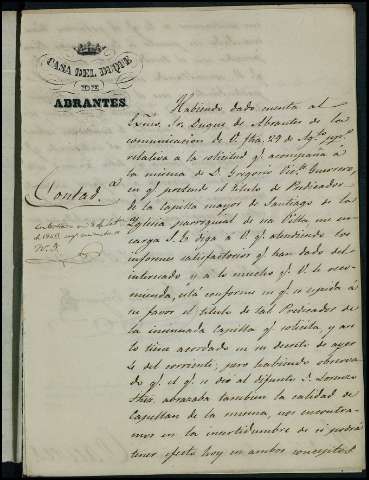 CASA DEL DUQUE
DE
ABRANTES.
Contad.ª
Habiendo dado cuenta al
Exmo. Sr. Duque de Abrantes de la
comunicacion de V. fha. 29 de Ag.to pp.º
relativa a la solicitud q.e acompaña á
la misma de D. Gregorio Guerrero,
en q.e pretende el titulo de Predicador
de la capilla mayor de Santiago de la
Yglesia parroquial de esa Villa me en-
carga S. E. diga á V. q.e atendiendo los
informes satisfactorios q.e han dado del
interesado y á lo mucho q.e V. le reco-
mienda, está conforme en q.e se espida á
su favor el titulo de tal Predicador de
la enunciada capilla q.e solicita, y an
lo tiene acordado en su decreto de ayer
5 del corriente, pero habiendo observa-
do q.e el q.e se dió al difunto D. Lorenzo
abrazaba tambien la calidad de
Capellan de la misma, nos encontra-
mos en la incertidumbre de si podrá
tener efecto hoy en ambos conceptos